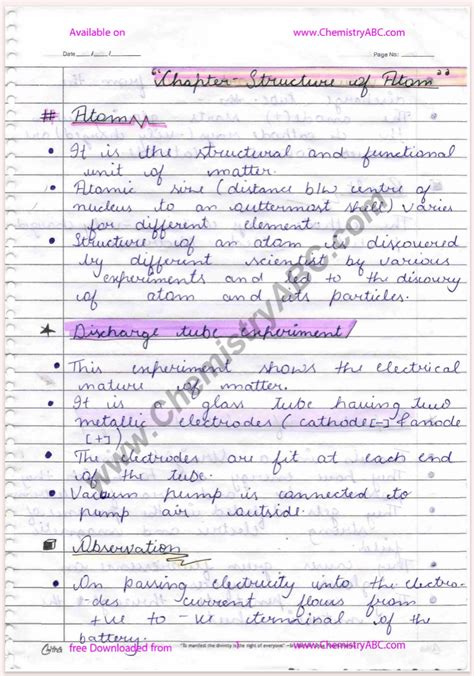 Available on www.ChemistryABC.com
Date Page No.
"Chapter-Structure of Atom"
# Atom
• It is the structural and functional
unit of matter.
• Atomic size (distance b/w centre of
nucleus to an outtermost shell) varies
for different element
• Structure of an atom is discovered
by different scientist by various
experiments and led to the discovery
of atom and its particles.
★ Discharge tube experiment/
• This experiment shows the electrical
nature of matter.
• It is a glass tube having two
metallic electrodes (cathode[-] & anode
[+])
• The electrodes are fit at each end
of the tube.
• Vacuum pump is connected to
pump air outside.
Observation
• On passing electricity into the electro-
-des current flows from
+ve to -ve terminal of the
battery.
free Downloaded from "To manifest the divinity is the right of everyone" www.ChemistryABC.com
www.ChemistryABC.com